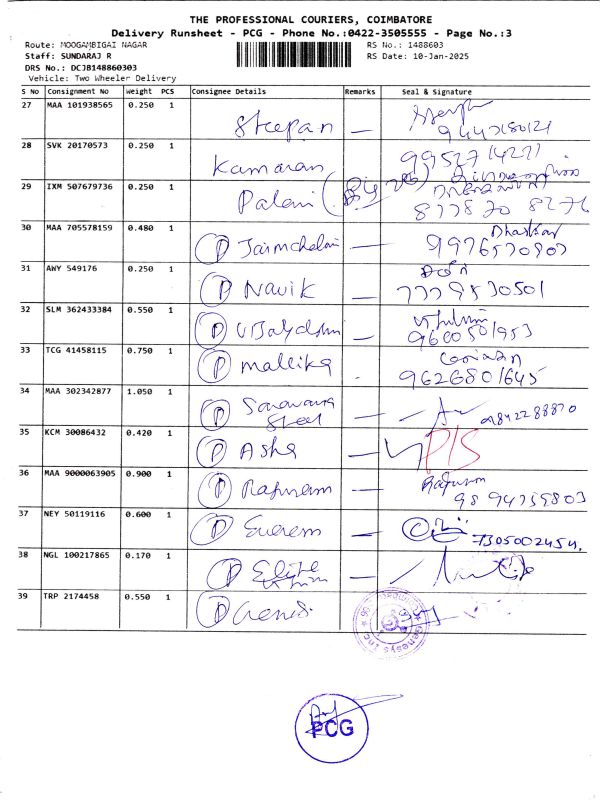 THE PROFESSIONAL COURIERS, COIMBATORE
Delivery Runsheet - PCG - Phone No.:0422-3505555 - Page No.:3
Route: MOOGAMBIGAI NAGAR RS No.: 1488603
Staff: SUNDARAJ R RS Date: 10-Jan-2025
DRS No.: DCJB148860303
Vehicle: Two Wheeler Delivery
S No Consignment No Weight PCS Consignee Details Remarks Seal & Signature
27 MAA 101938565 0.250 1
Steepan —
28 SVK 20170573 0.250 1
Kamaran 9952714271
29 IXM 507679736 0.250 1
Palani 877870 8276
30 MAA 705578159 0.480 1 Dhaskar
P — 9976570907
31 AWY 549176 0.250 1
P Navik — 7779530501
32 SLM 362433384 0.550 1
P — 9600501953
33 TCG 41458115 0.750 1
P mallika 9626801645
34 MAA 302342877 1.050 1
P Saravana — 09842288870
Steel
35 KCM 30086432 0.420 1
P Asha — P/S
36 MAA 9000063905 0.900 1
P Rafuram — 9894759803
37 NEY 50119116 0.600 1
P — 7305002454.
38 NGL 100217865 0.170 1
P Elite —
39 TRP 2174458 0.550 1
P
PCG